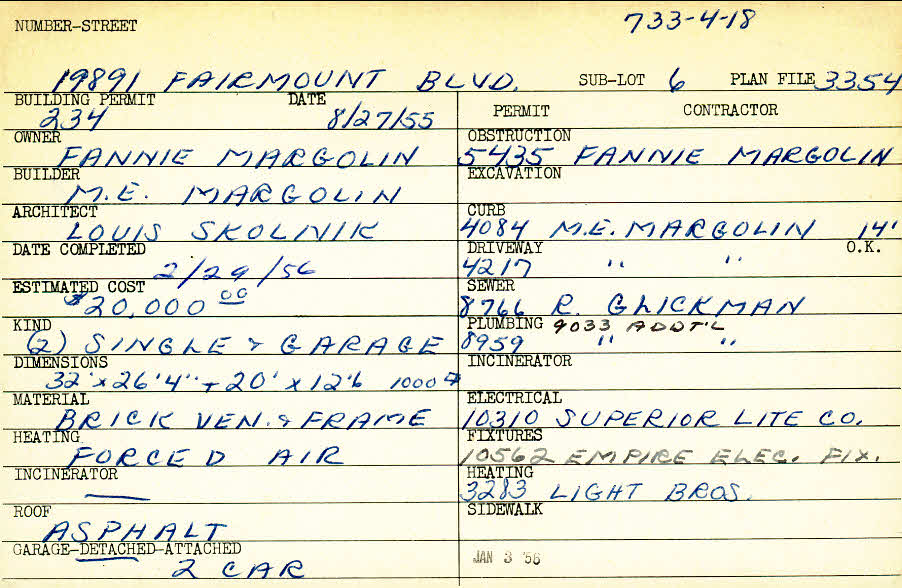 NUMBER-STREET
733-4-18
19891 FAIRMOUNT BLVD. SUB-LOT 6 PLAN FILE 3354
BUILDING PERMIT DATE
234 8/27/55
OWNER
FANNIE MARGOLIN
BUILDER
M.E. MARGOLIN
ARCHITECT
LOUIS SKOLNIK
DATE COMPLETED
2/29/56
ESTIMATED COST
$20,000 00
KIND
(2) SINGLE & GARAGE
DIMENSIONS
32' x 26'4" + 20' x 12'6 1000
MATERIAL
BRICK VEN. & FRAME
HEATING
FORCED AIR
INCINERATOR
—
ROOF
ASPHALT
GARAGE-DETACHED-ATTACHED
2 CAR
PERMIT CONTRACTOR
OBSTRUCTION
5435 FANNIE MARGOLIN
EXCAVATION
CURB
4084 M.E. MARGOLIN 14'
DRIVEWAY O.K.
4217 " "
SEWER
8766 R. GLICKMAN
PLUMBING 9033 ADDT'L
8959 " "
INCINERATOR
ELECTRICAL
10310 SUPERIOR LITE CO.
FIXTURES
10562 EMPIRE ELEC. FIX.
HEATING
3283 LIGHT BROS.
SIDEWALK
JAN 3 '56